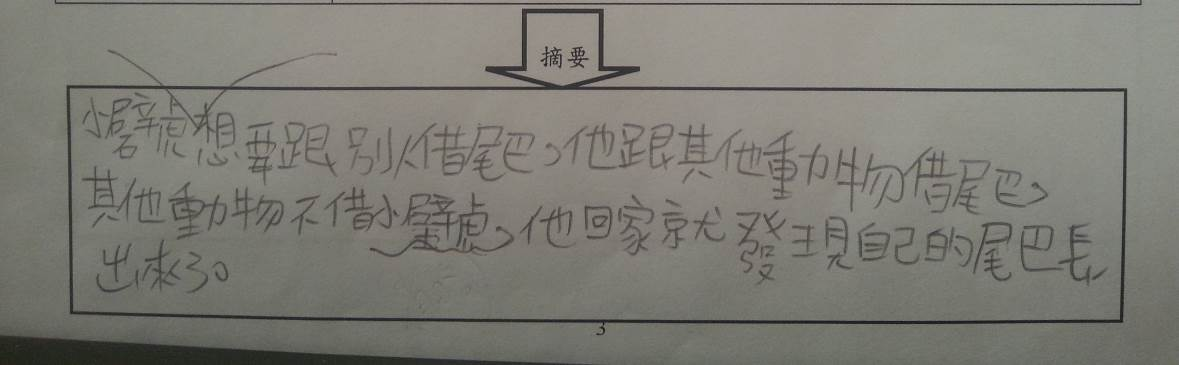 摘要
小壁虎想要跟別人借尾巴，他跟其他動物借尾巴，
其他動物不借小壁虎，他回家就發現自己的尾巴長
出來了。
3